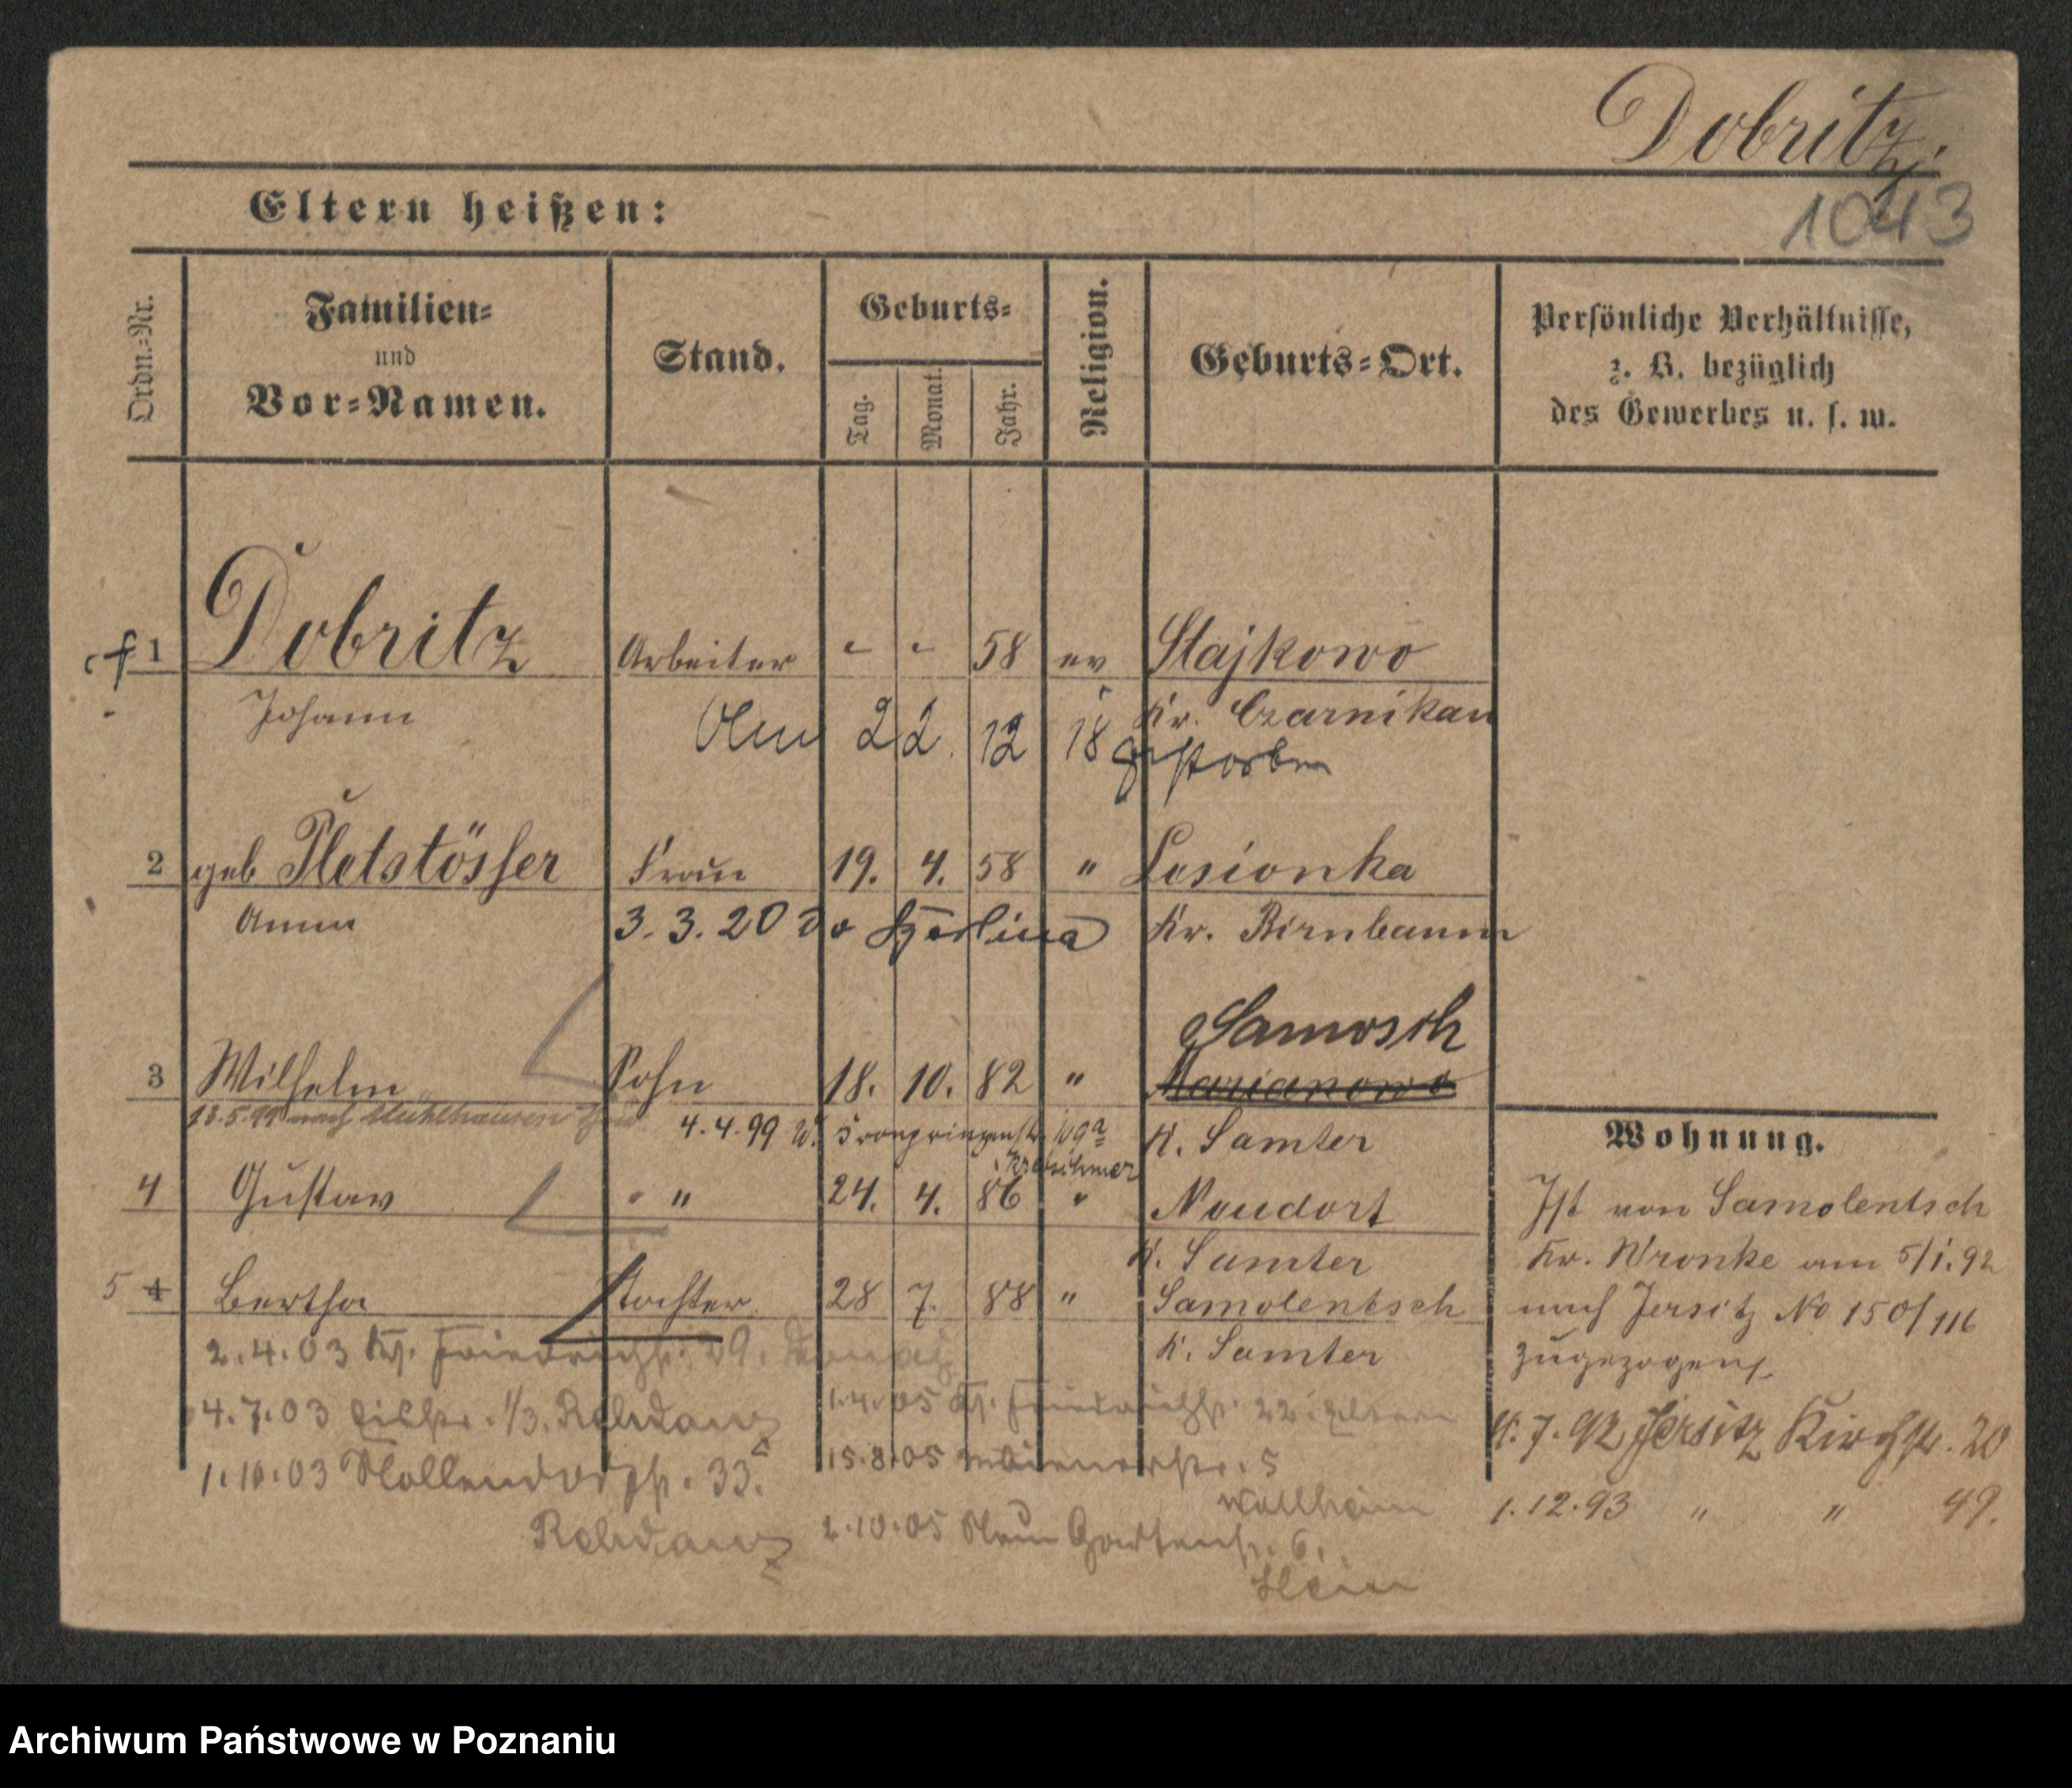 Dobritz.
1043
Eltern heißen:
Ordn.-Nr.
Familien-
und
Vor-Namen.
Stand.
Geburts-
Tag.
Monat.
Jahr.
Religion.
Geburts-Ort.
Persönliche Verhältnisse,
z. B. bezüglich
des Gewerbes u. s. w.
1 Dobritz Arbeiter 58 ev Stajkowo
Johann Kr. Czarnikau
22. 12 18 gestorben
2 geb Pletstösser Frau 19. 4. 58 " Losionka
Anna Kr. Birnbaum
3. 3. 20
Samosch
3 Wilhelm Sohn 18. 10. 82 " Marianowo
13.5.99 nach Mühlhausen
4.4.99 W. Kronprinzenstr K. Samter
Kretschmer
4 Gustav " 24. 4. 86 " Neudorf
K. Samter
5 4 Bertha Tochter 28 7. 88 " Samolentsch
K. Samter
2.4.03 Friedrichstr. 29.
4.7.03 1/3. Rehdanz
1.10.03 Nollendorfstr. 33.
Rehdanz
1.4.05 Friedrichstr. 22. Eltern
15.8.05 5
Wollheim
2.10.05 Neue Gartenstr. 6.
Heim
Wohnung.
Ist von Samolentsch
Kr. Wronke am 5/1.92
nach Jersitz No 150/116
zugezogen.
7.92 Jersitz Kirchstr. 20
1.12.93 " " 49.
Archiwum Państwowe w Poznaniu